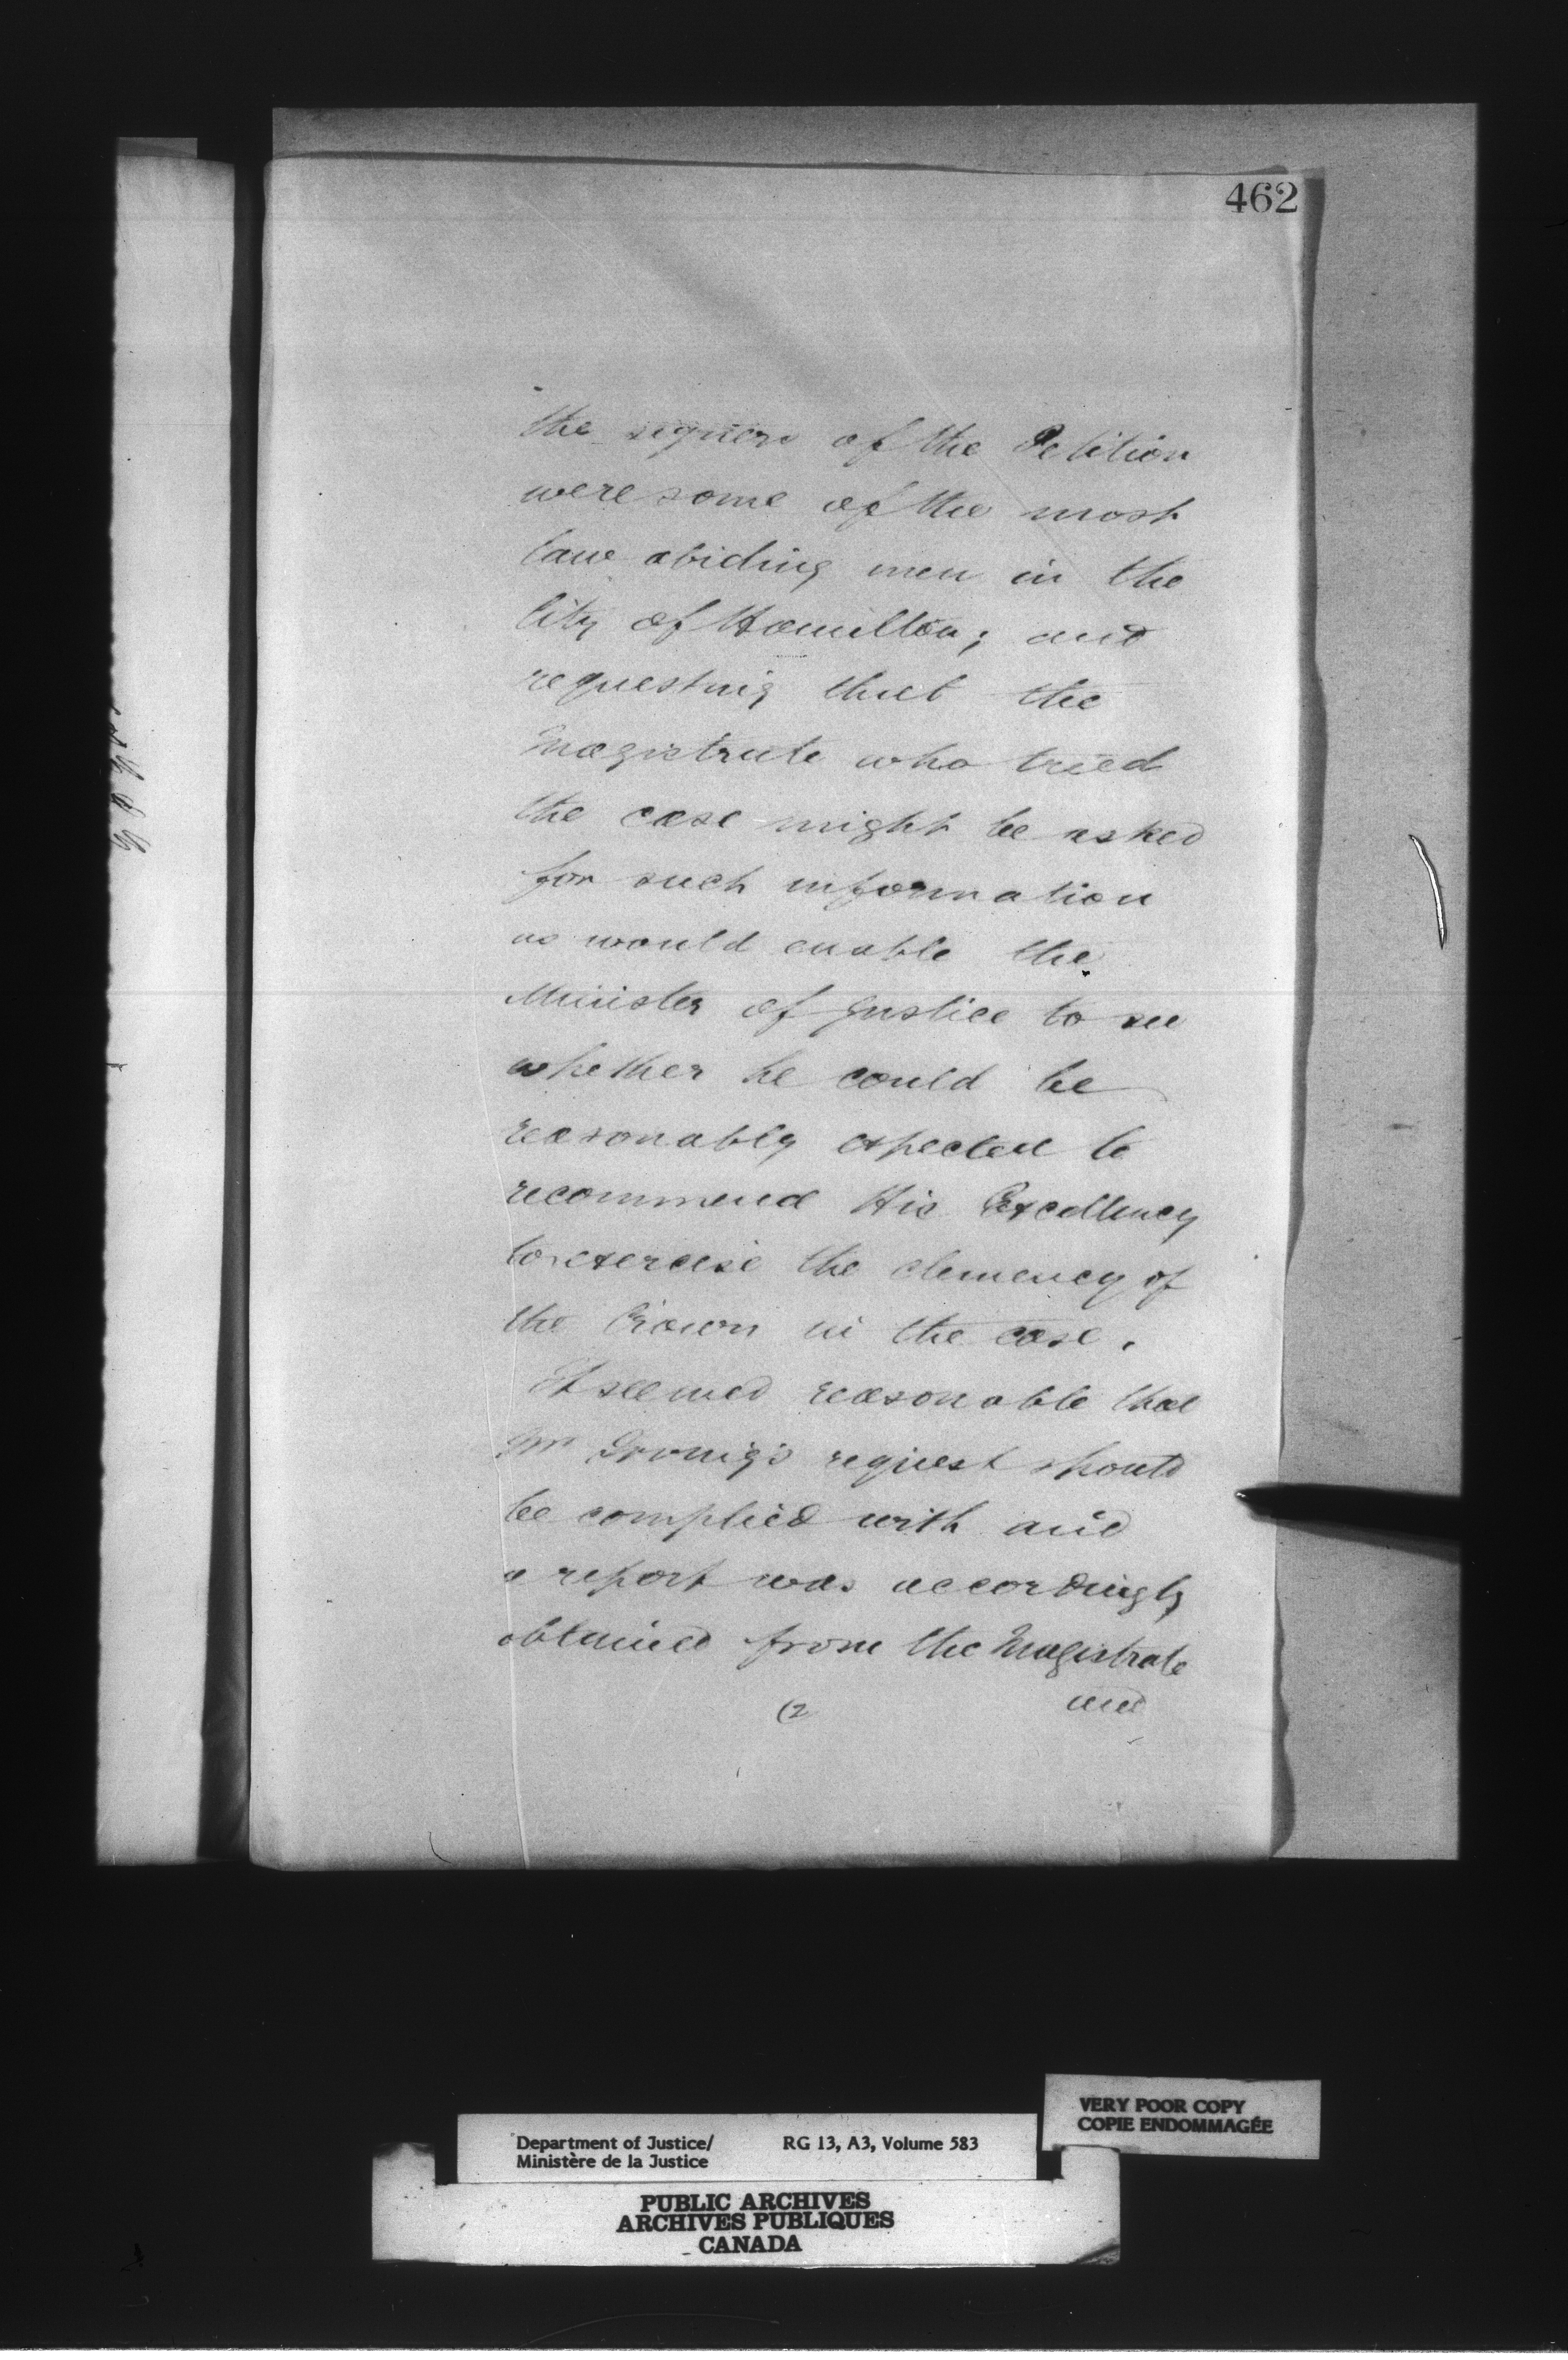 462
the signers of the Petition
were some of the most
law abiding men in the
City of Hamilton; and
requesting that the
Magistrate who tried
the case might be asked
for such information
as would enable the
Minister of Justice to see
whether he could be
reasonably expected to
recommend His Excellency
to exercise the clemency of
the Crown in the case.
It seemed reasonable that
Mr Irving's request should
be complied with and
a report was accordingly
obtained from the Magistrate
(2 and
VERY POOR COPY
COPIE ENDOMMAGÉE
Department of Justice/ RG 13, A3, Volume 583
Ministère de la Justice
PUBLIC ARCHIVES
ARCHIVES PUBLIQUES
CANADA